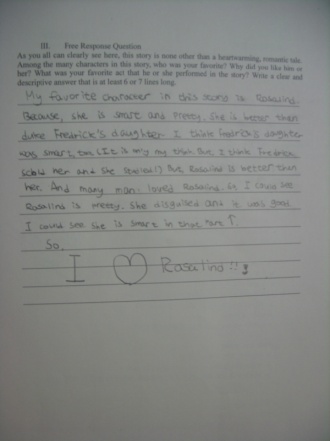 III. Free Response Question
As you all can clearly see here, this story is none other than a heartwarming, romantic tale.
Among the many characters in this story, who was your favorite? Why did you like him or
her? What was your favorite act that he or she performed in the story? Write a clear and
descriptive answer that is at least 6 or 7 lines long.
My favorite character in this story is Rosalind.
Because, she is smart and pretty. She is better than
duke Fredrick's daughter. I think fredrick's daughter
was smart, too. (It is only my think. But I think Fredrick
scold her and she) But, Rosalind is better than
her. And many man loved Rosalind. So I could see
Rosalind is pretty. She disguised and it was good.
I could see she is smart in that part ↑.
So,
I ♡ Rosalind !!